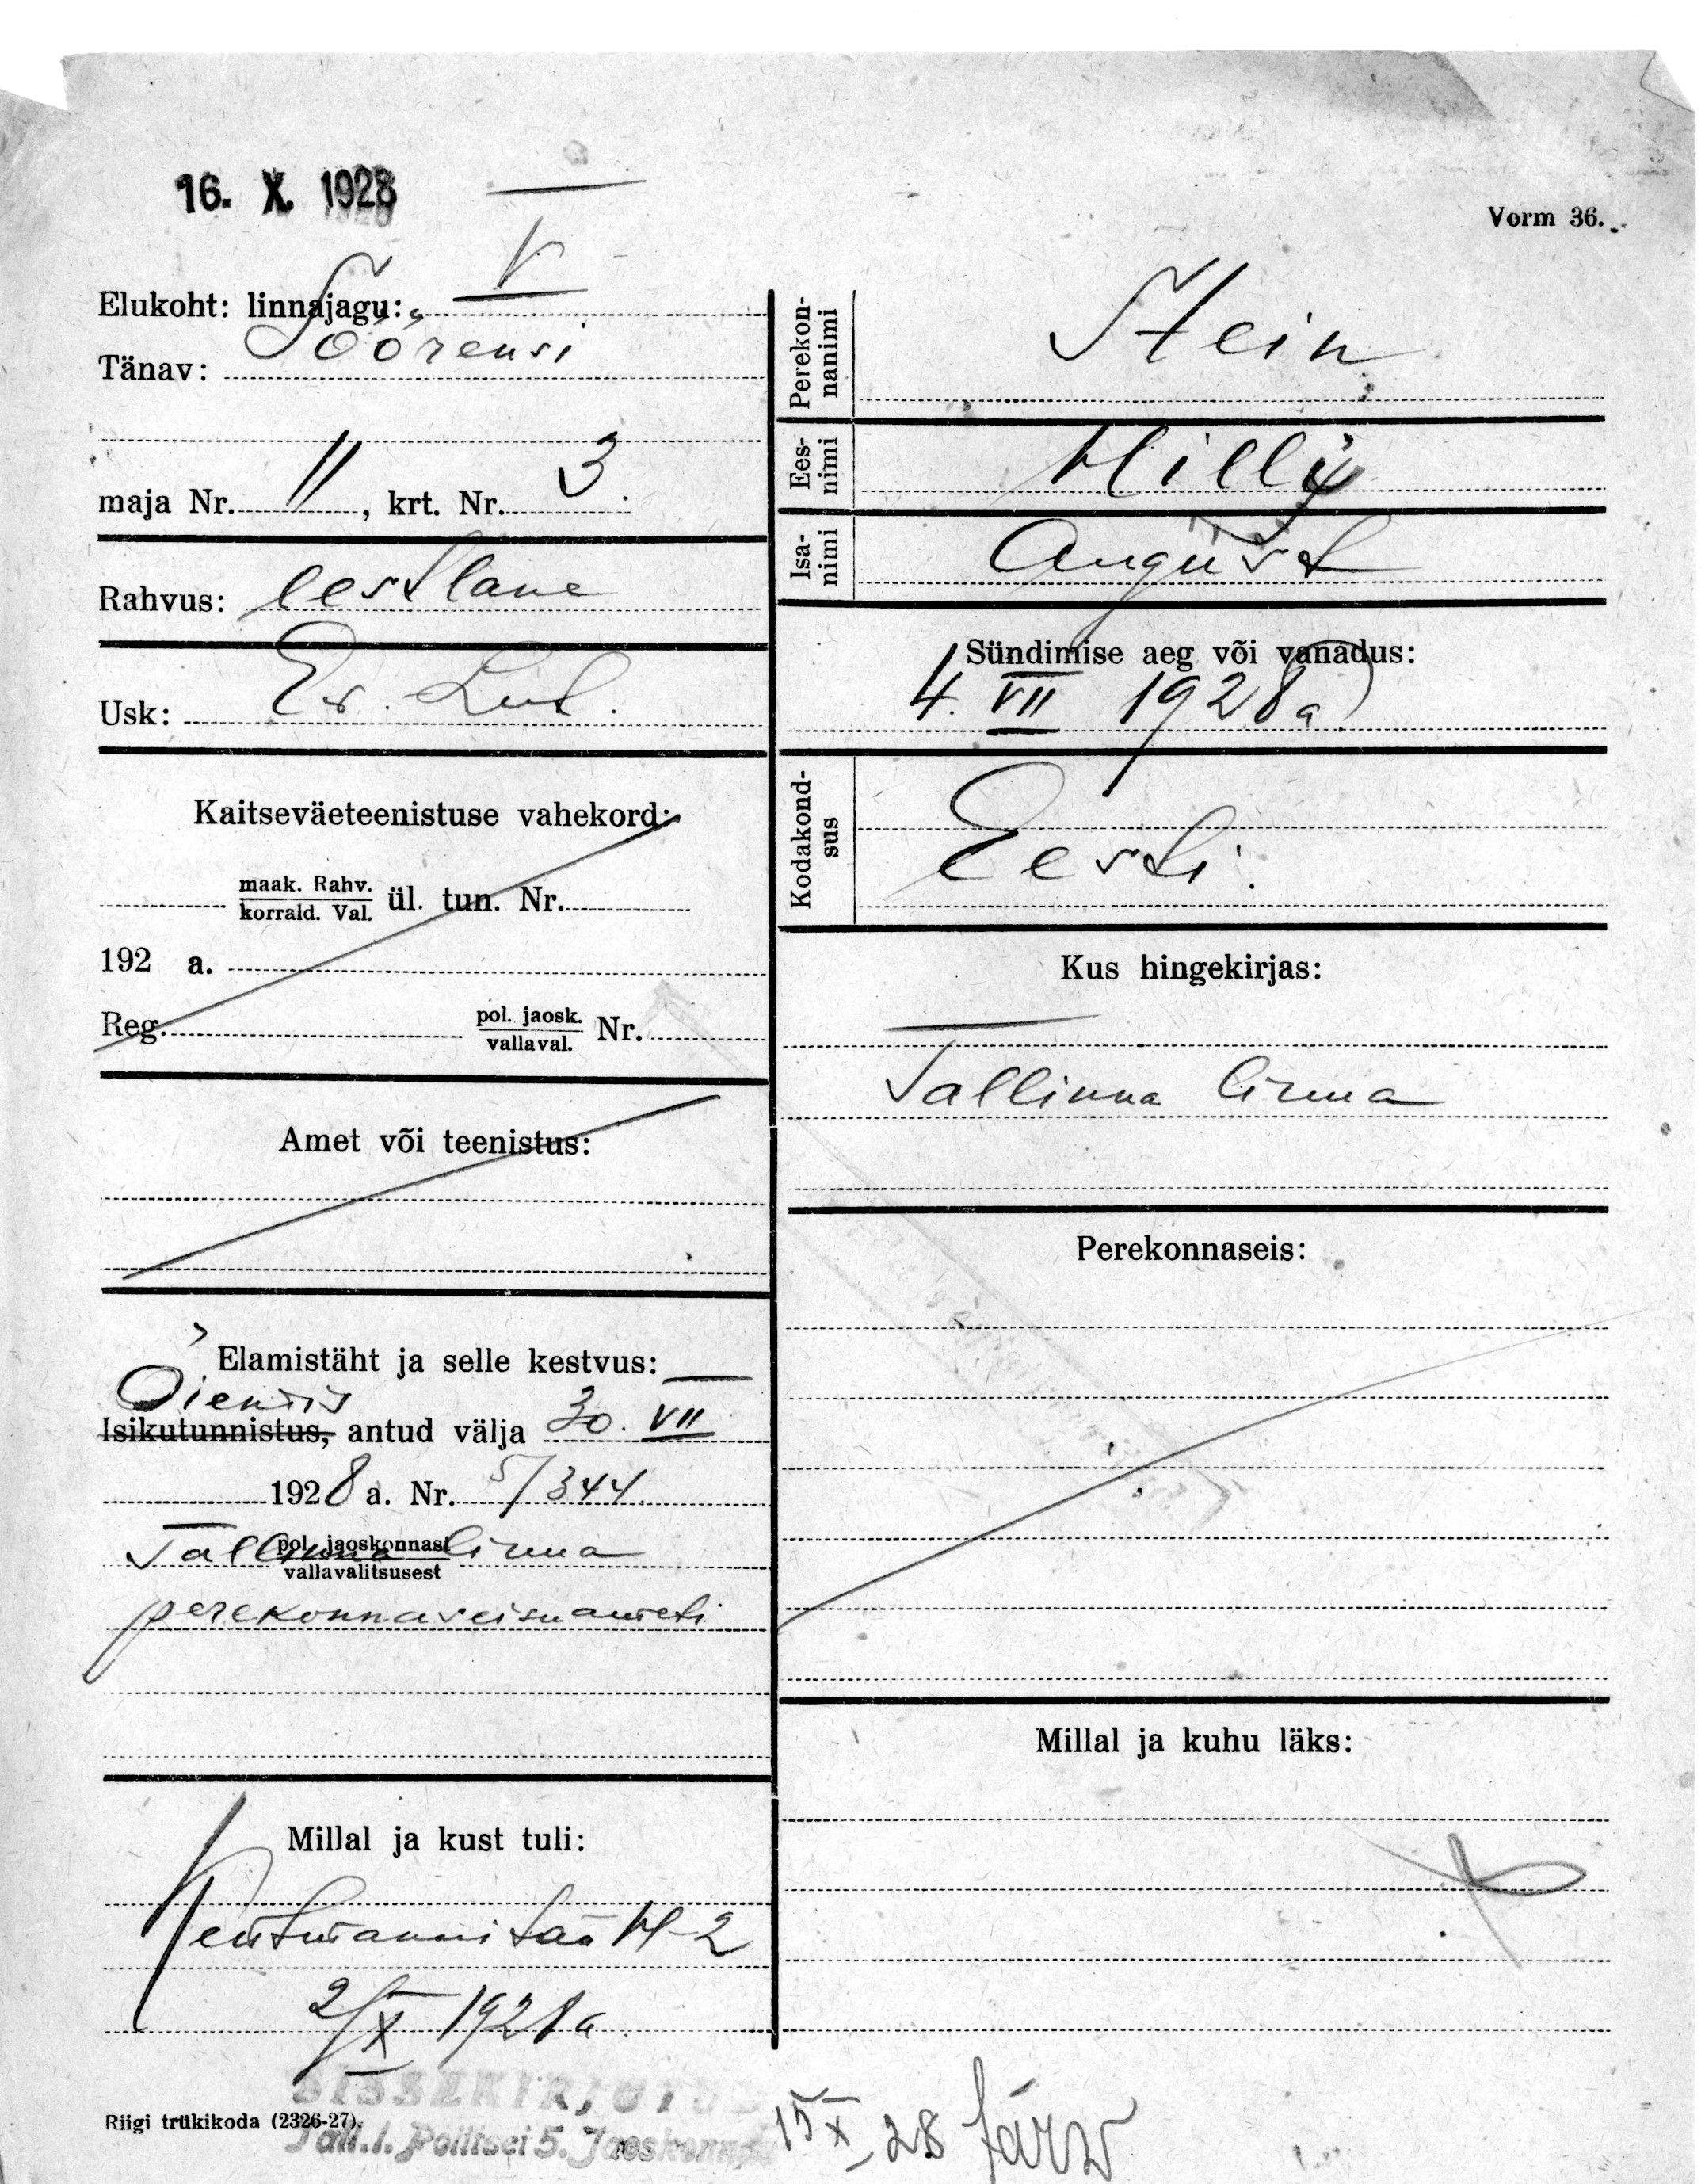 16. X. 1928
Vorm 36.
Elukoht: linnajagu: V
Tänav: Söörensi
maja Nr. 11, krt. Nr. 3.
Rahvus: eestlane
Usk: Ev. Lut.
Kaitseväeteenistuse vahekord:
maak. Rahv.
korrald. Val. ül. tun. Nr.
192 a.
Reg. pol. jaosk.
vallaval. Nr.
Amet või teenistus:
Elamistäht ja selle kestvus: —
Õiendis
Isikutunnistus, antud välja 30. VII
1928 a. Nr. 5/344
pol. jaoskonnast
Tallinna linna
vallavalitsusest
perekonnaseisuameti
Millal ja kust tuli:
Kentmanni tän 14-2
2/X 1928 a
Riigi trükikoda (2326-27).
SISSEKIRJUTUS
Tall.l. Politsei 5. Jaoskonnas
Perekon-
nanimi
Stein
Ees-
nimi
Milly
Isa-
nimi
August
Sündimise aeg või vanadus:
4. VII 1928 a
Kodakond-
sus
Eesti.
Kus hingekirjas:
Tallinna linna
Perekonnaseis:
Millal ja kuhu läks:
15 X 28 Järw